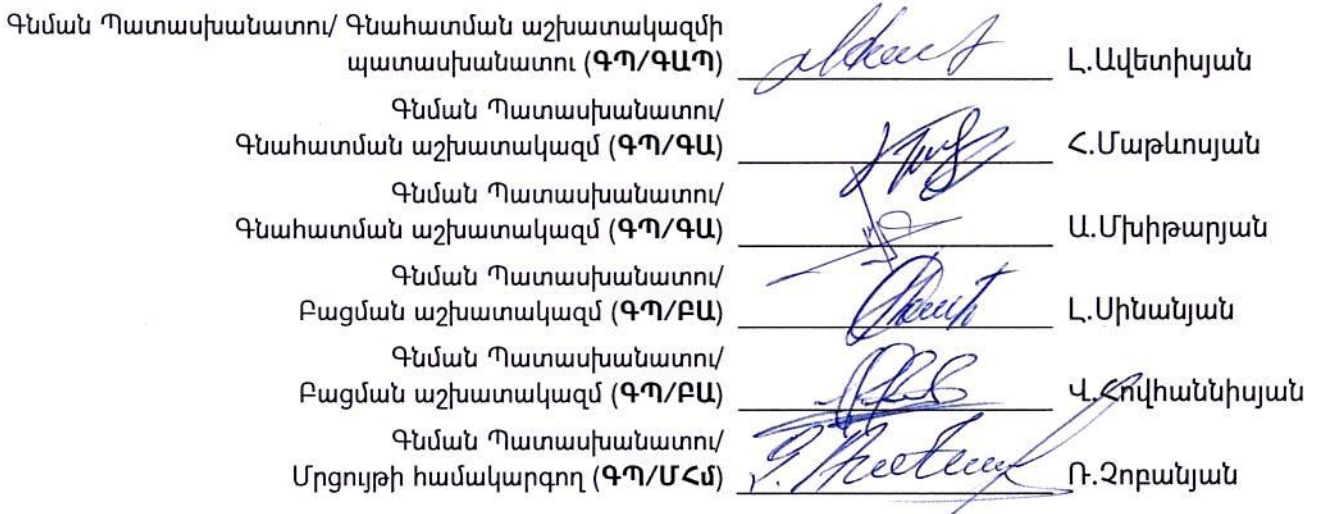 Գնման Պատասխանատու/ Գնահատման աշխատակազմի
պատասխանատու (ԳՊ/ԳԱՊ) Լ.Ավետիսյան
Գնման Պատասխանատու/
Գնահատման աշխատակազմ (ԳՊ/ԳԱ) Հ.Մաթևոսյան
Գնման Պատասխանատու/
Գնահատման աշխատակազմ (ԳՊ/ԳԱ) Ա.Մխիթարյան
Գնման Պատասխանատու/
Բացման աշխատակազմ (ԳՊ/ԲԱ) Լ.Սինանյան
Գնման Պատասխանատու/
Բացման աշխատակազմ (ԳՊ/ԲԱ) Վ.Հովհաննիսյան
Գնման Պատասխանատու/
Մրցույթի համակարգող (ԳՊ/ՄՀմ) Ռ.Չոբանյան